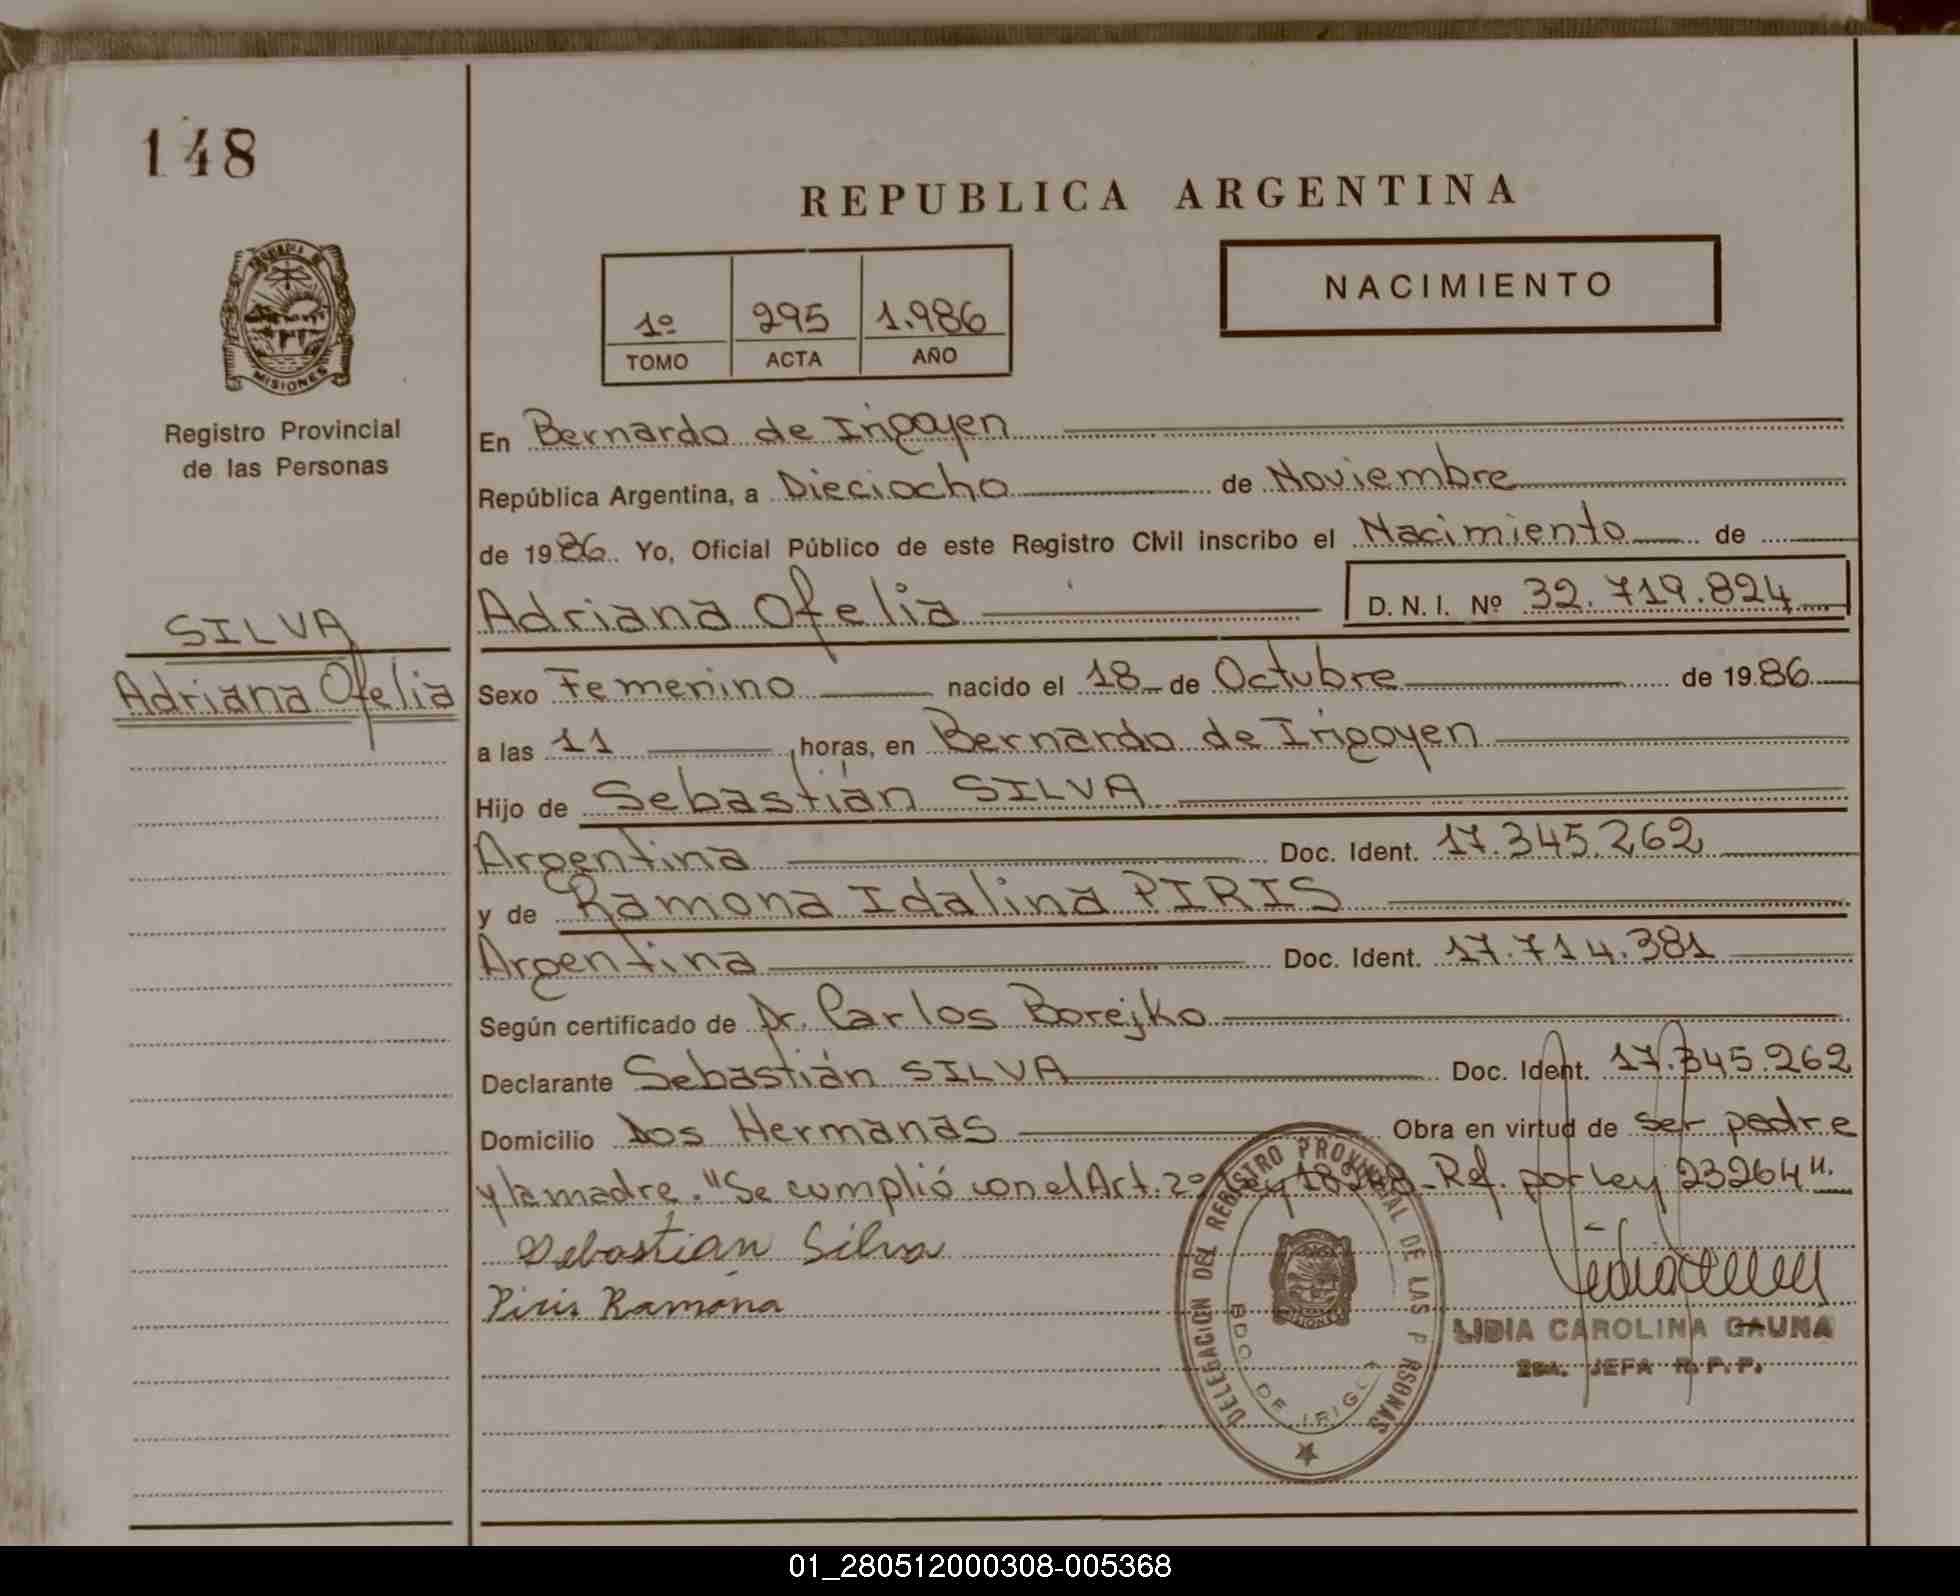 148
MISIONES
Registro Provincial
de las Personas
SILVA
Adriana Ofelia
REPUBLICA ARGENTINA
1º 295 1.986
TOMO ACTA AÑO
NACIMIENTO
En Bernardo de Irigoyen
República Argentina, a Dieciocho de Noviembre
de 1986. Yo, Oficial Público de este Registro Civil inscribo el Nacimiento de
Adriana Ofelia D. N. I. Nº 32.719.824
Sexo Femenino nacido el 18 de Octubre de 1986
a las 11 horas, en Bernardo de Irigoyen
Hijo de Sebastián SILVA
Argentina Doc. Ident. 17.345.262
y de Ramona Idalina PIRIS
Argentina Doc. Ident. 17.714.381
Según certificado de Dr. Carlos Borejko
Declarante Sebastián SILVA Doc. Ident. 17.345.262
Domicilio Dos Hermanas Obra en virtud de ser padre
y la madre. "Se cumplió con el Art. 2º Ley 18248 - Ref. por Ley 23264".
Sebastian Silva
Piris Ramona
DELEGACION DEL REGISTRO PROVINCIAL DE LAS P RSONAS
BDO. DE IRIGO
MISIONES
LIDIA CAROLINA GAUNA
JEFA R.P.P.
01_280512000308-005368